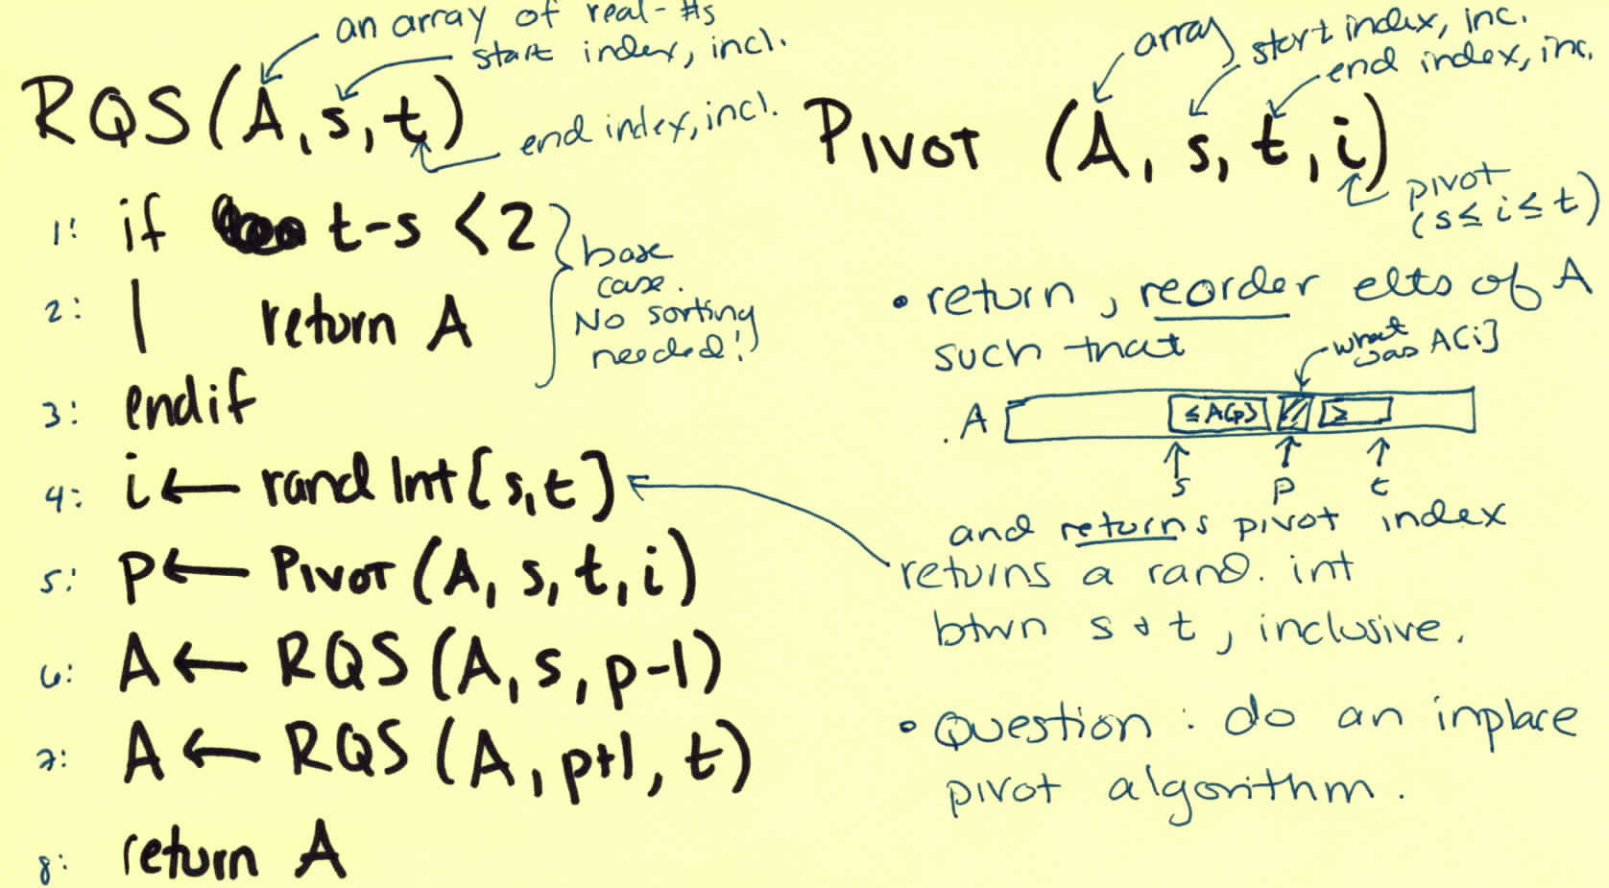 an array of real-#s
start index, incl.
RQS(A,s,t)
end index, incl.
1: if t-s <2
2: return A
base
case.
No sorting
needed!
3: endif
4: i ← rand Int[s,t]
5: p ← PIVOT (A, s, t, i)
6: A ← RQS (A, s, p-1)
7: A ← RQS (A, p+1, t)
8: return A
array
start index, inc.
end index, inc.
PIVOT (A, s, t, i)
pivot
(s≤ i ≤ t)
• return, reorder elts of A
such that
what
was A[i]
A
≤A[p]
≥
s p t
and returns pivot index
returns a rand. int
btwn s & t, inclusive.
• Question: do an inplace
pivot algorithm.